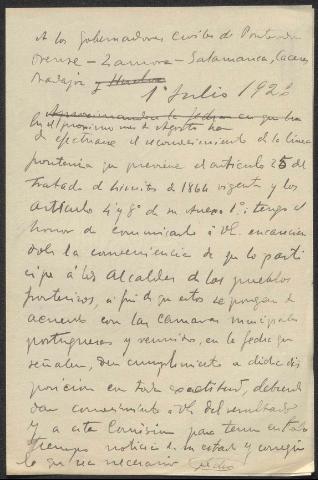 A los Gobernadores Civiles de Pontevedra
Orense – Zamora – Salamanca, Caceres
Badajoz y Huelva
1º Julio 192
Aproximandose la fecha en que ha
En el proximo mes de Agosto han
de efectuarse el reconocimiento de la linea
fronteriza que previene el articulo 25 del
Tratado de Limites de 1864 vigente y los
Articulos 4 y 8º de su Anexo 1º; tengo el
honor de comunicarlo á V.
la conveniencia de que lo parti
cipe á los Alcaldes de los pueblos
fronterizos, a fin de que estos se pongan de
acuerdo con las Camaras municipales
portuguesas y reunidos, en la fecha que
señalen, den cumplimiento a dicha dis
posicion en toda exactitud, debiendo
dar conocimiento á V. del resultado
y a esta Comision para tener en todo
tiempo noticia de su estado y corregir
lo que sea necesario